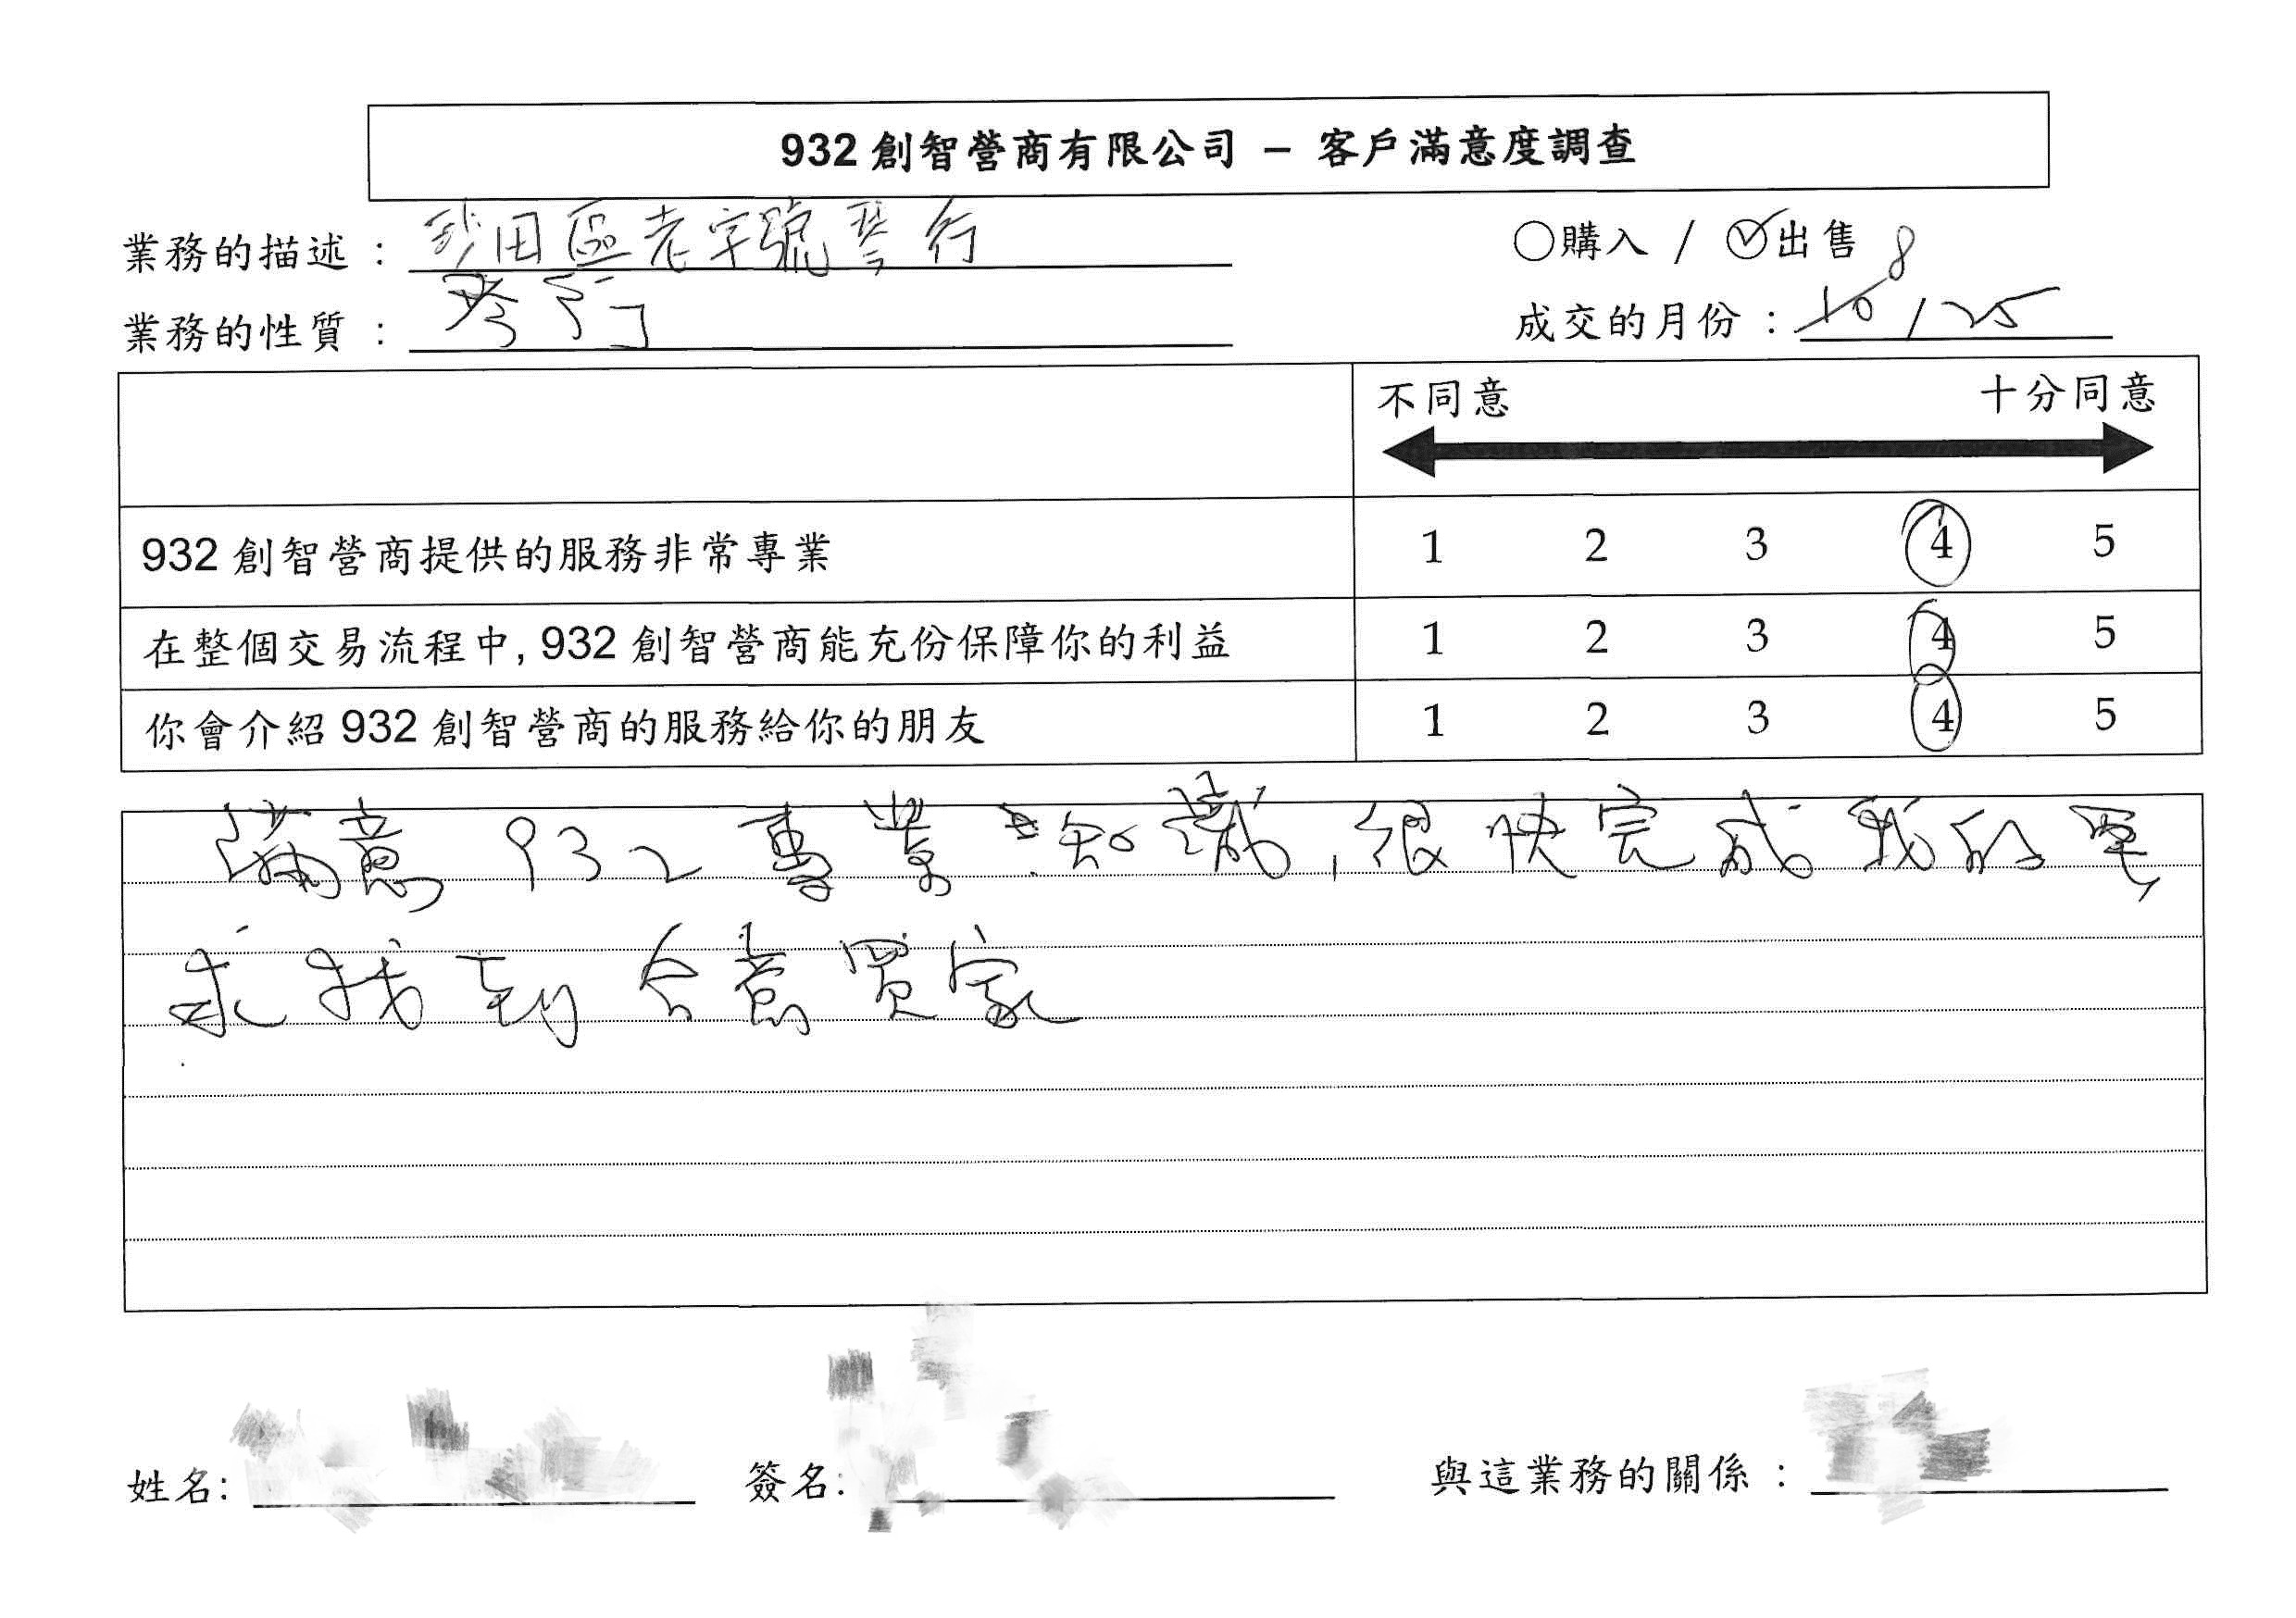 932 創智營商有限公司 – 客戶滿意度調查
業務的描述 : 沙田區老字號琴行
○購入 / ☑出售
業務的性質 : 琴行
成交的月份 : 8/25
不同意 十分同意
932 創智營商提供的服務非常專業 1 2 3 4 5
在整個交易流程中, 932 創智營商能充份保障你的利益 1 2 3 4 5
你會介紹 932 創智營商的服務給你的朋友 1 2 3 4 5
滿意 932 專業知識, 很快完成我的要
求找到合意買家
姓名: 簽名: 與這業務的關係 :